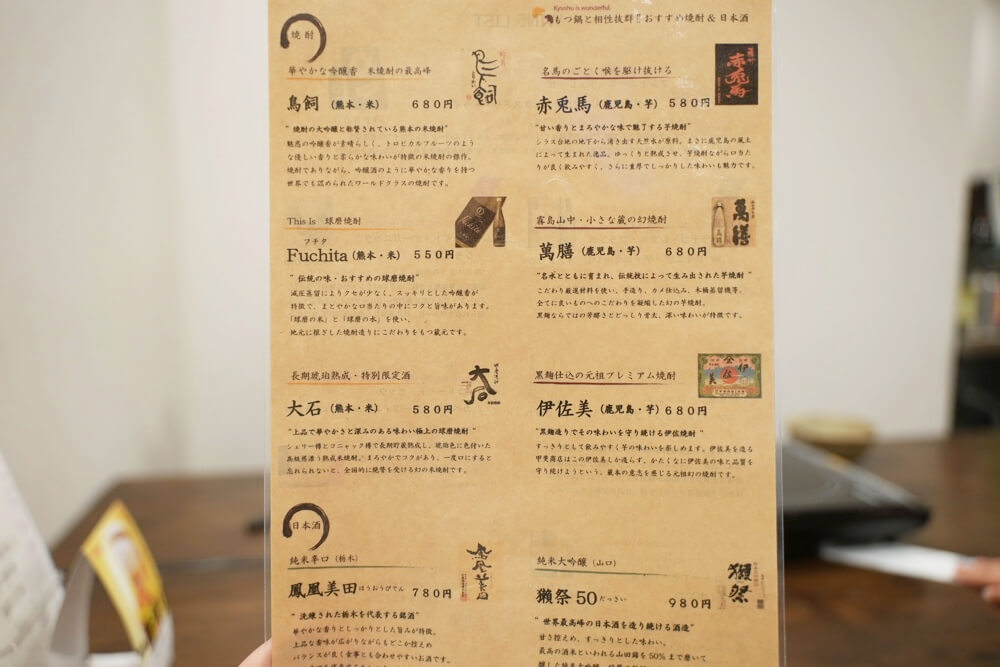 Kyushu is wonderful.
もつ鍋と相性抜群!!おすすめ焼酎&日本酒
焼酎
華やかな吟醸香 米焼酎の最高峰
鳥飼 (熊本・米) 680円
"焼酎の大吟醸と称賛されている熊本の米焼酎"
魅惑の吟醸香が素晴らしく、トロピカルフルーツのよう
な優しい香りと柔らかな味わいが特徴の米焼酎の傑作。
焼酎でありながら、吟醸酒のように華やかな香りを持つ
世界でも認められたワールドクラスの焼酎です。
This Is 球磨焼酎
フチタ
Fuchita (熊本・米) 550円
"伝統の味・おすすめの球磨焼酎"
減圧蒸留によりクセが少なく、スッキリとした吟醸香が
特徴で、まとやかな口当たりの中にコクと旨味があります。
「球磨の米」と「球磨の水」を使い、
地元に根ざした焼酎造りにこだわりをもつ蔵元です。
長期琥珀熟成・特別限定酒
大石 (熊本・米) 580円
"上品で華やかさと深みのある味わい極上の球磨焼酎"
シェリー樽とコニャック樽で長期貯蔵熟成し、琥珀色に色付いた
高級感漂う熟成米焼酎。まろやかでコクがあり、一度口にすると
忘れられないと、全国的に絶賛を受ける幻の米焼酎です。
名馬のごとく喉を駆け抜ける
赤兎馬 (鹿児島・芋) 580円
赤兎馬
"甘い香りとまろやかな味で魅了する芋焼酎"
シラス台地の地下から湧き出す天然水が原料。まさに鹿児島の風土
によって生まれた逸品。ゆっくりと熟成させ、芋焼酎ながら口当た
りが良く飲みやすく、さらに重厚でしっかりした味わいも魅力です。
霧島山中・小さな蔵の幻焼酎
萬膳 (鹿児島・芋) 680円
萬膳
"名水とともに育まれ、伝統技によって生み出された芋焼酎"
こだわり厳選材料を使い、手造り、カメ仕込み、木桶蒸留機等。
全てに良いものへのこだわりを凝縮した幻の芋焼酎。
黒麹ならではの芳醇さとどっしり骨太、深い味わいが特徴です。
黒麹仕込の元祖プレミアム焼酎
伊佐美 (鹿児島・芋) 680円
"黒麹造りでその味わいを守り続ける伊佐焼酎"
すっきりとして飲みやすく芋の味わいを楽しめます。伊佐美を造る
甲斐商店はこの伊佐美しか造らず、かたくなに伊佐美の味と品質を
守り続けようという、蔵本の意志を感じる元祖幻の焼酎です。
日本酒
純米辛口 (栃木)
鳳凰美田 ほうおうびでん 780円
鳳凰美田
"洗練された栃木を代表する銘酒"
華やかな香りとしっかりとした旨みが特徴。
上品な香味が広がりながらもどこか控えめ
バランスが良く食事とも合わせやすいお酒です。
純米大吟醸 (山口)
獺祭 50 だっさい 980円
獺祭
"世界最高峰の日本酒を造り続ける酒造"
甘さ控えめ、すっきりとした味わい。
最高の酒米といわれる山田錦を50%まで磨いて
醸した純米大吟醸